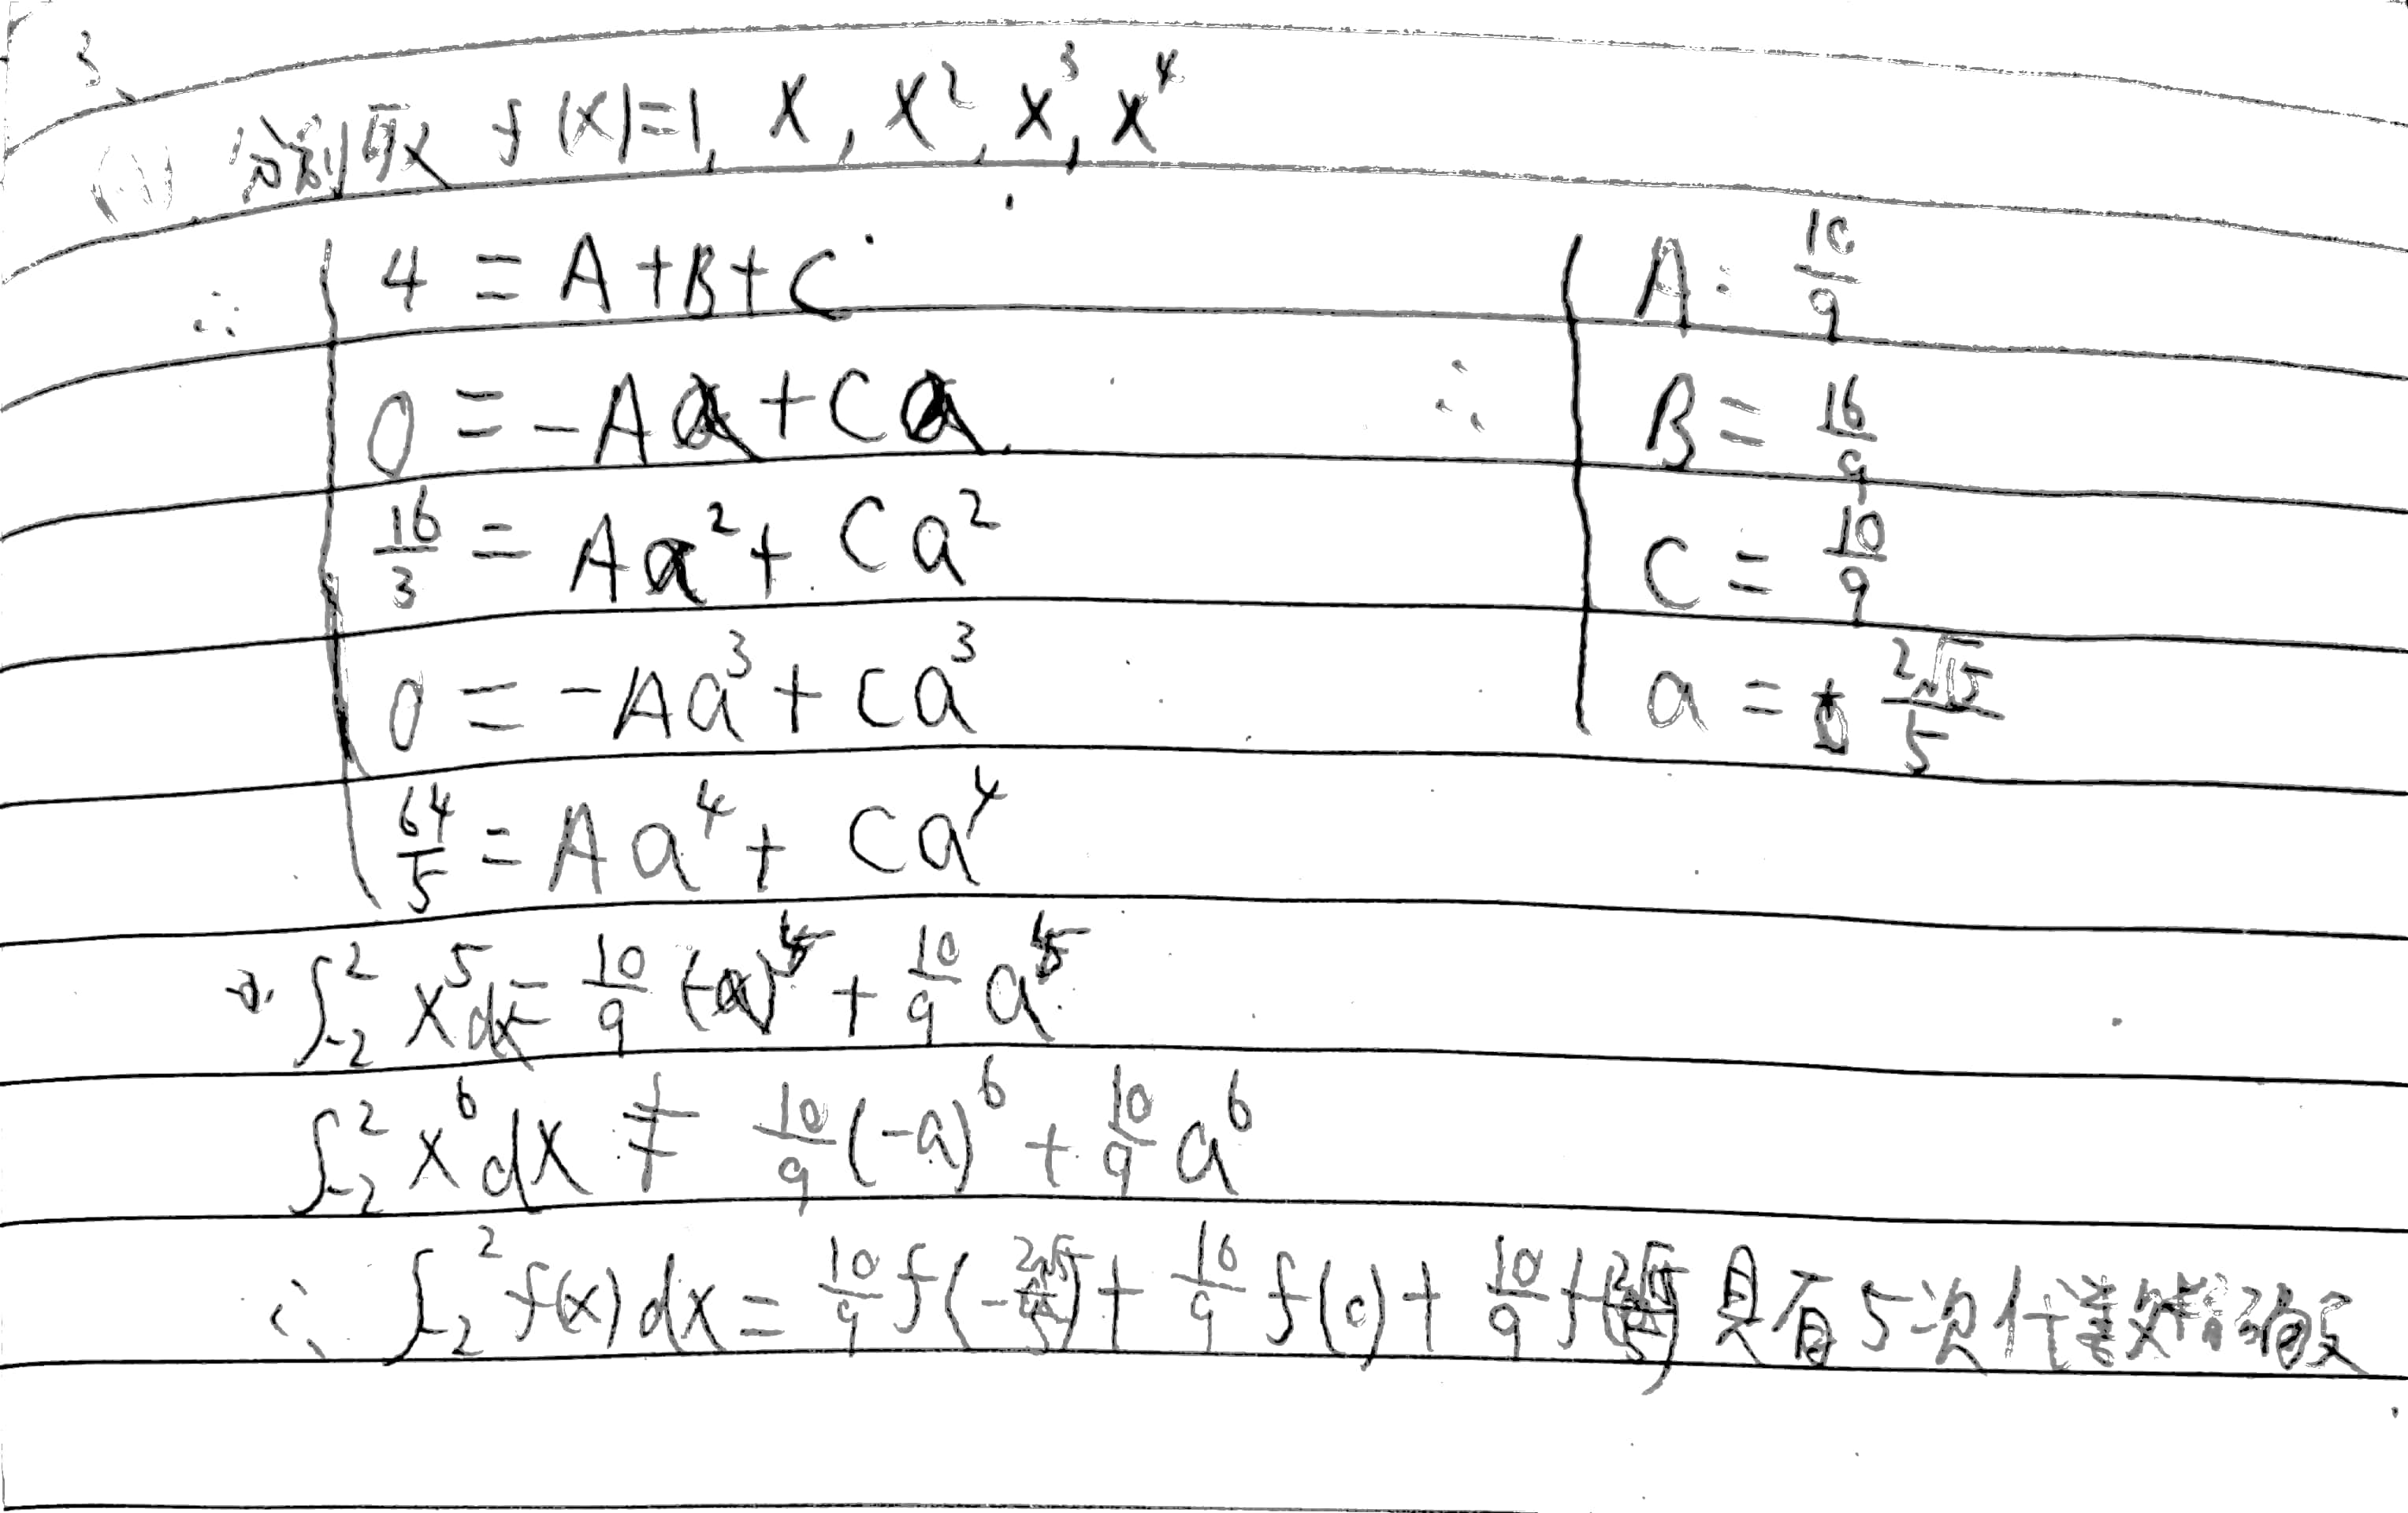 3、
(2) 分别取 f(x)=1, x, x², x³, x⁴
∴ 4 = A+B+C
0 = -Aa+Ca
16/3 = Aa²+Ca²
0 = -Aa³+Ca³
64/5 = Aa⁴+Ca⁴
∴ A = 10/9
B = 16/9
C = 10/9
a = 2√15/5
∫₋₂² x⁵dx = 10/9 (-a)⁵ + 10/9 a⁵
∫₋₂² x⁶dx ≠ 10/9 (-a)⁶ + 10/9 a⁶
∴ ∫₋₂² f(x)dx = 10/9 f(-2√15/5) + 16/9 f(0) + 10/9 f(2√15/5) 具有5次代数精确度